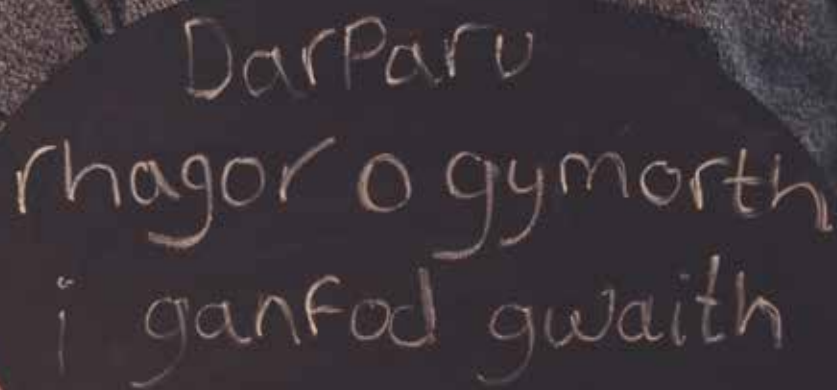 DarParu
rhagor o gymorth
i ganfod gwaith